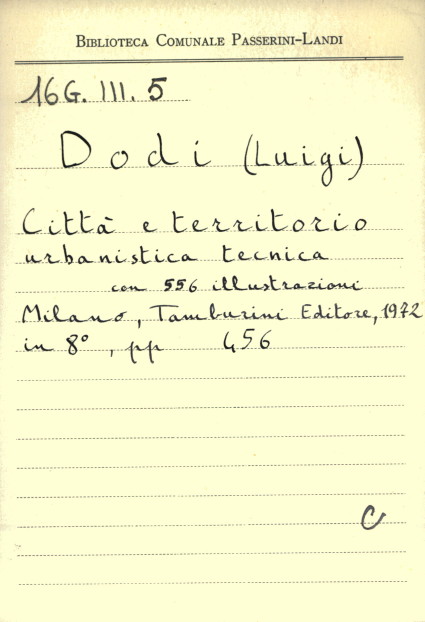 Biblioteca Comunale Passerini-Landi
16 G. III. 5
Dodi (Luigi)
Città e territorio
urbanistica tecnica
con 556 illustrazioni
Milano, Tamburini Editore, 1972
in 8°, pp 456
C